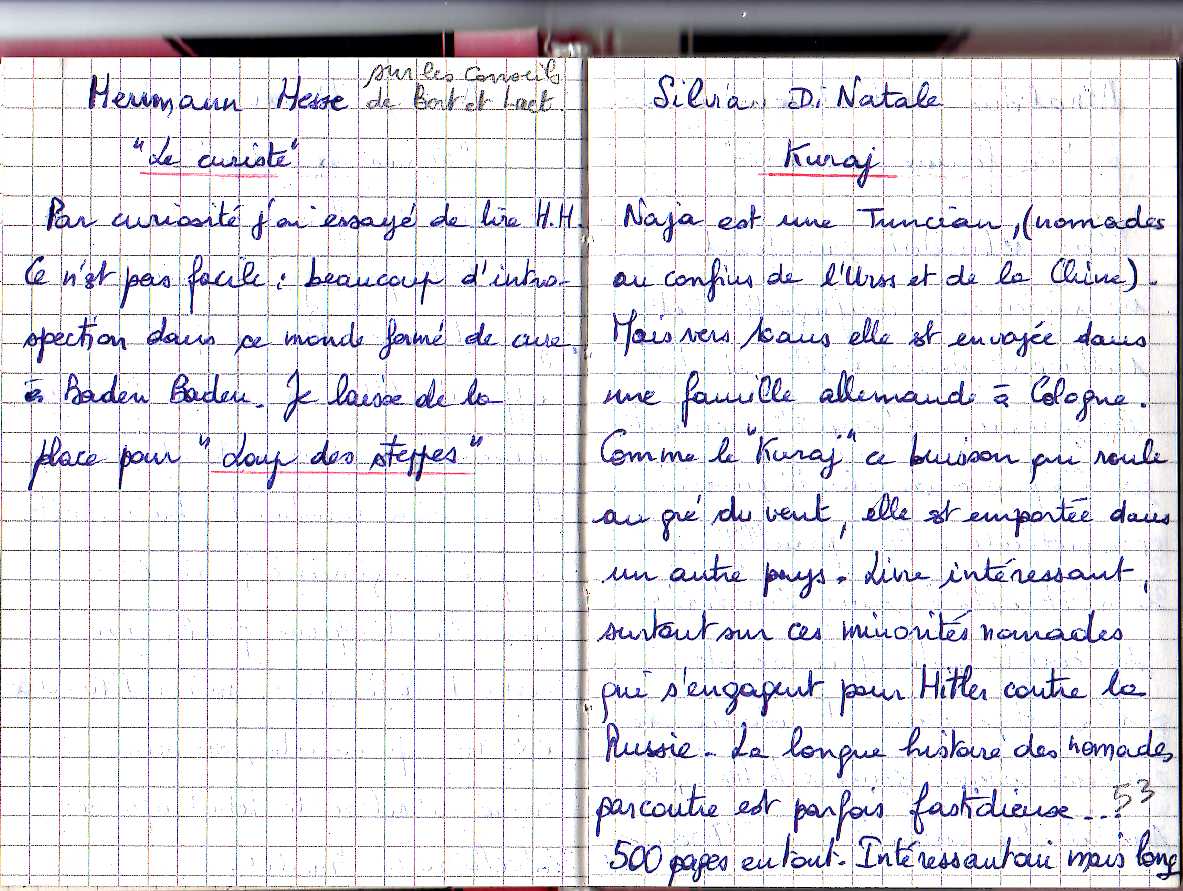 Hermann Hesse
sur les Conseils
de Bert et Laet.
"Le curiste"
Par curiosité j'ai essayé de lire H.H.
Ce n'est pas facile : beaucoup d'intro-
spection dans ce monde fermé de cure
à Baden Baden. Je laisse de la
place pour "Loup des steppes"
Silvia Di Natale
Kuraj
Naja est une Tuncian, (nomades
au confins de l'Urss et de la Chine).
Mais vers ans elle est envoyée dans
une famille allemande à Cologne.
Comme le "Kuraj" ce buisson qui roule
au gré du vent, elle est emportée dans
un autre pays. Livre intéressant,
surtout sur ces minorités nomades
qui s'engagent pour Hitler contre la
Russie. La longue histoire des nomades
parcontre est parfois fastidieuse...
53
500 pages en tout. Intéressant oui mais long